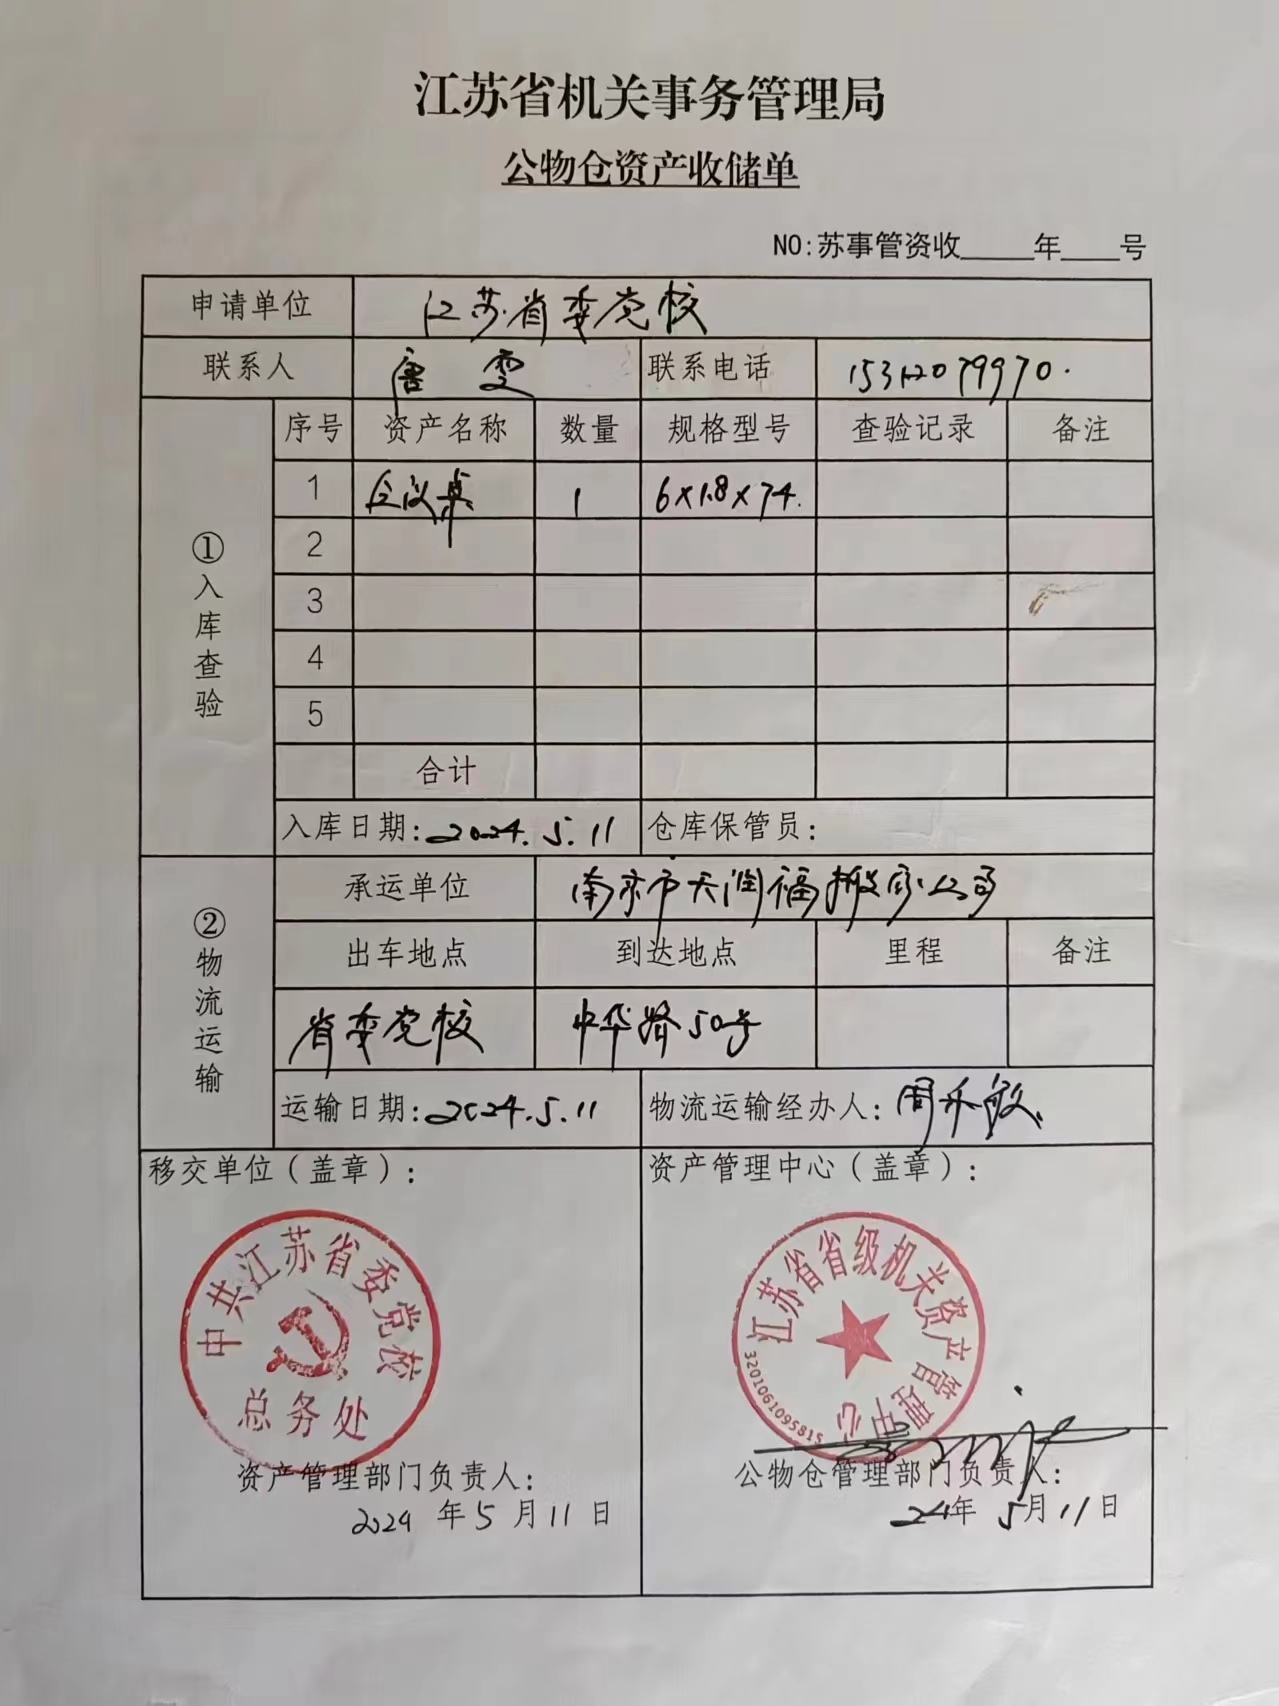 江苏省机关事务管理局
公物仓资产收储单
NO:苏事管资收_____年____号
申请单位 江苏省委党校
联系人 唐雯 联系电话 15312079970.
①入库查验
序号 资产名称 数量 规格型号 查验记录 备注
1 会议桌 1 6×1.8×74.
2
3
4
5
合计
入库日期:2024.5.11 仓库保管员:
②物流运输
承运单位 南京市天润福搬家公司
出车地点 到达地点 里程 备注
省委党校 中华路50号
运输日期:2024.5.11 物流运输经办人:周
移交单位(盖章): 资产管理中心(盖章):
中共江苏省委党校
总务处
江苏省省级机关资产管理中心
3201061095815
资产管理部门负责人: 公物仓管理部门负责人:
2024年5月11日 24年5月11日